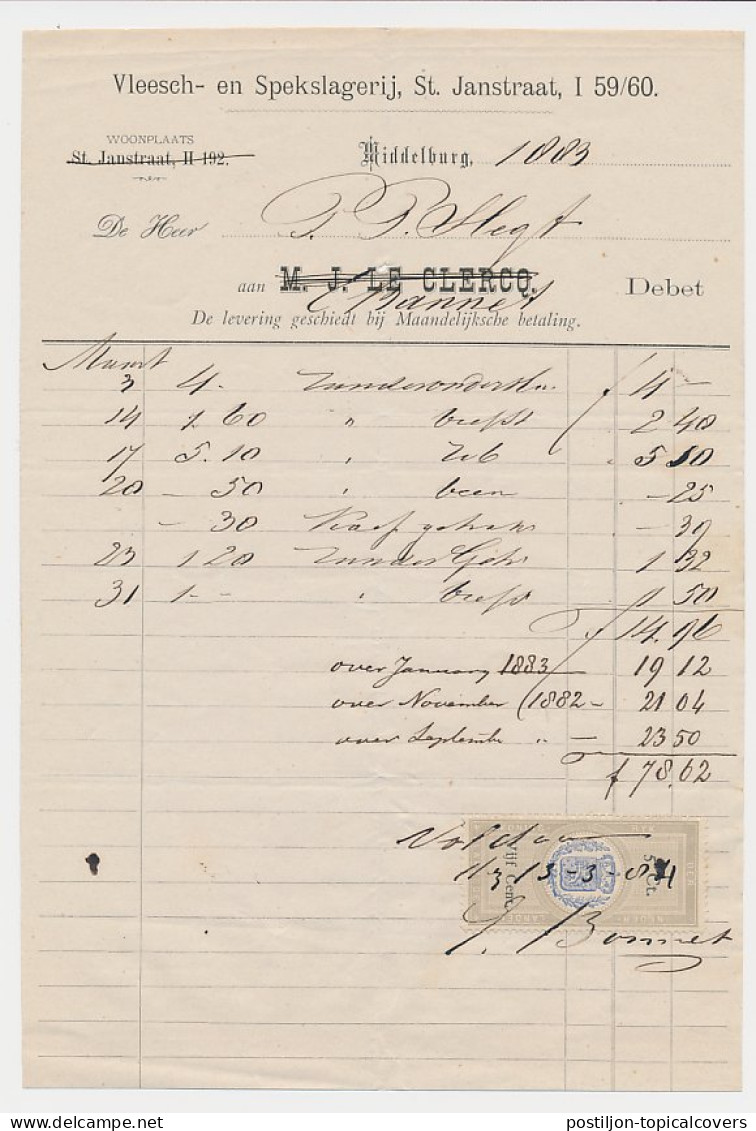 Vleesch- en Spekslagerij, St. Janstraat, I 59/60.
WOONPLAATS
St. Janstraat, H 192.
Middelburg, 1883
De Heer P. P. Slegt
aan M. J. LE CLERCQ. Debet
De levering geschiedt bij Maandelijksche betaling.
Maart
3 4 - f 4 -
14 1.60 " biefst 2 40
17 5.10 " rib 5 50
20 - 50 " been - 25
- 30 Kalf gehakt - 39
23 1 20 Runder Geh. 1 32
31 1 - - " biefst 1 50
f 14.96
over January 1883 - 19 12
over November (1882 - 21 04
over Septembe " - 23 50
f 78,62
Voldaan
13-3-84
Vijf Cent.
5 Ct.
J. Bonnet
postiljon-topicalcovers